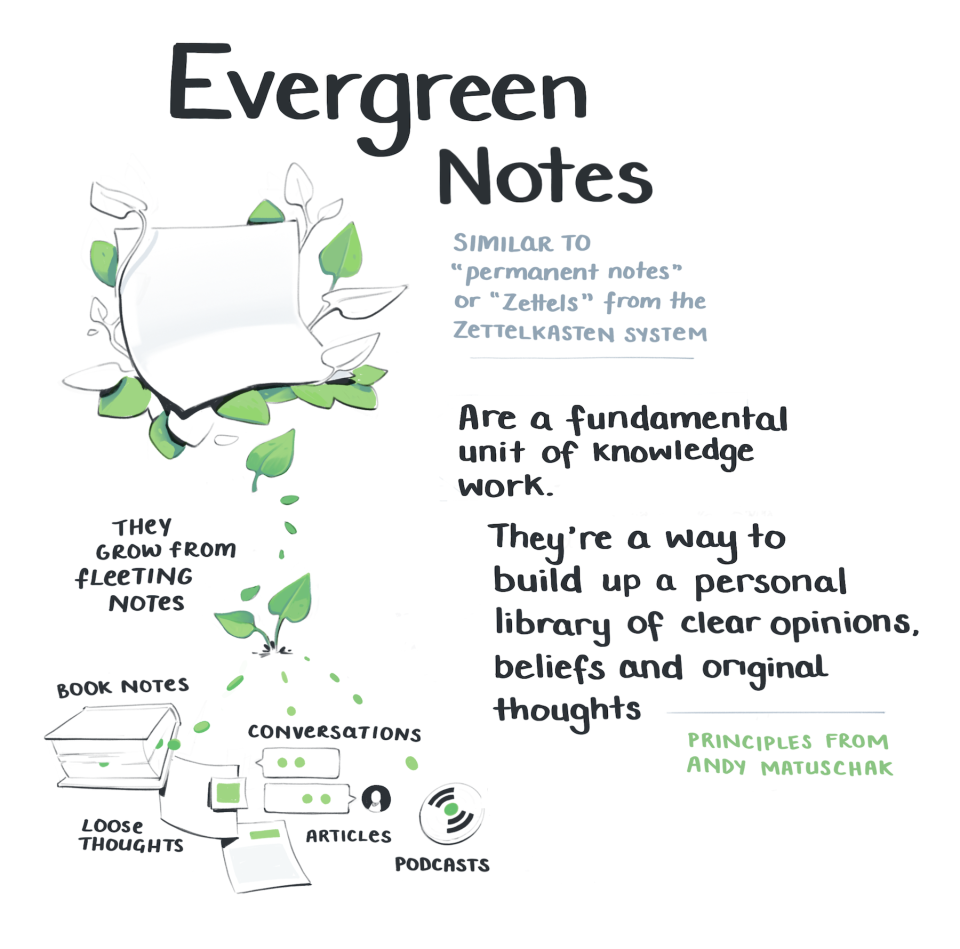 Evergreen
Notes
SIMILAR TO
"permanent notes"
or "Zettels" from the
ZETTELKASTEN SYSTEM
Are a fundamental
unit of knowledge
work.
They're a way to
build up a personal
library of clear opinions,
beliefs and original
thoughts
PRINCIPLES FROM
ANDY MATUSCHAK
THEY
GROW FROM
FLEETING
NOTES
BOOK NOTES
CONVERSATIONS
LOOSE
THOUGHTS
ARTICLES
PODCASTS